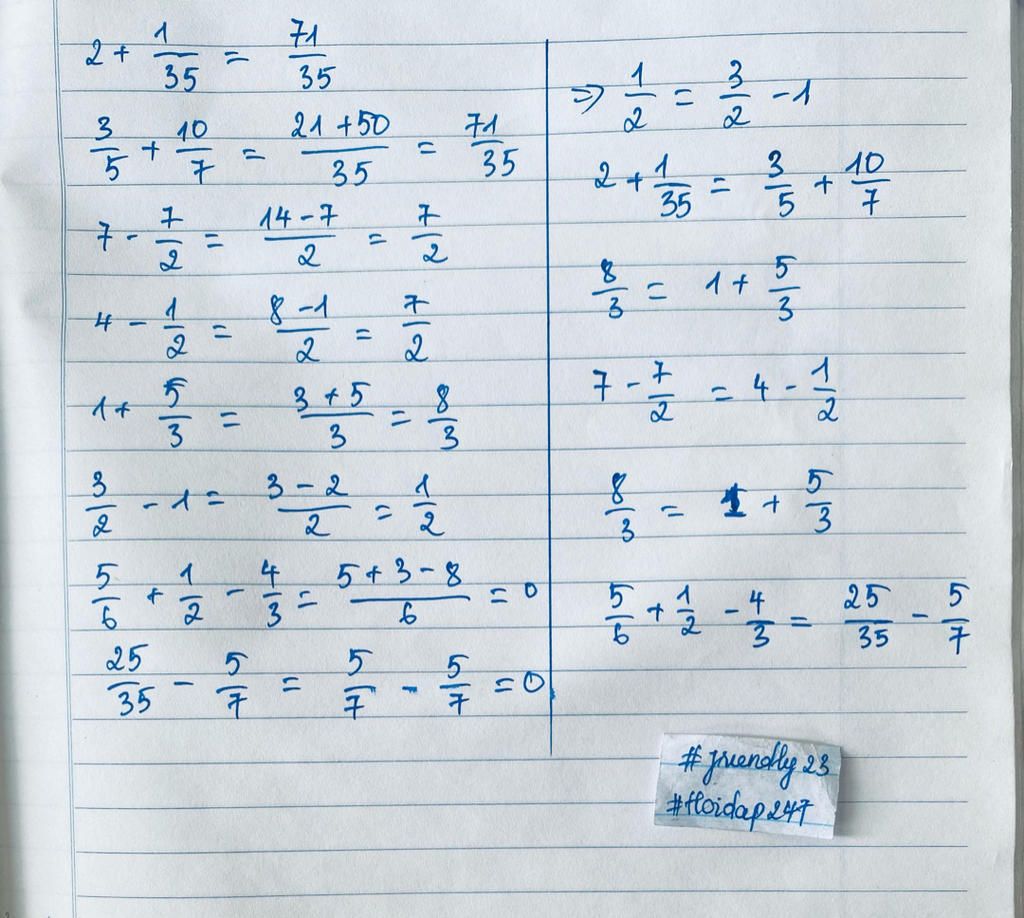 2 + 1/35 = 71/35
3/5 + 10/7 = (21 + 50)/35 = 71/35
7 - 7/2 = (14 - 7)/2 = 7/2
4 - 1/2 = (8 - 1)/2 = 7/2
1 + 5/3 = (3 + 5)/3 = 8/3
3/2 - 1 = (3 - 2)/2 = 1/2
5/6 + 1/2 - 4/3 = (5 + 3 - 8)/6 = 0
25/35 - 5/7 = 5/7 - 5/7 = 0
=> 1/2 = 3/2 - 1
2 + 1/35 = 3/5 + 10/7
8/3 = 1 + 5/3
7 - 7/2 = 4 - 1/2
8/3 = 1 + 5/3
5/6 + 1/2 - 4/3 = 25/35 - 5/7
#friendly23
#Hoidap247